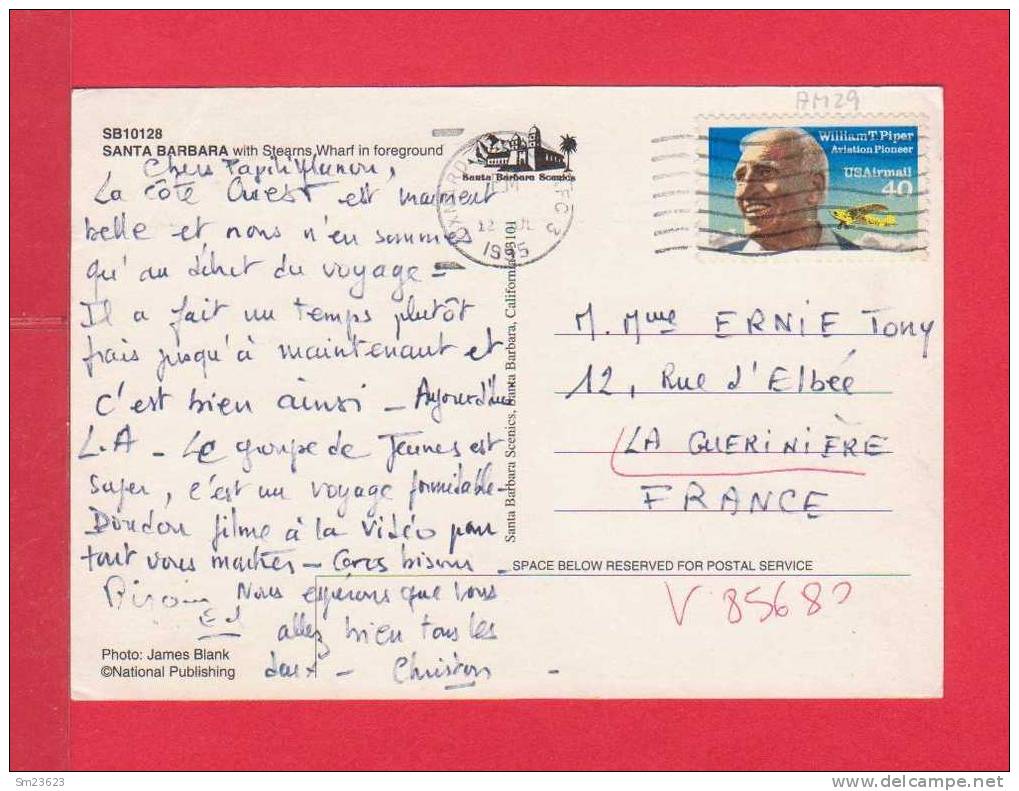 AM29
SB10128
SANTA BARBARA with Stearns Wharf in foreground
Chers Papili Manou,
La côte Ouest est vraiment
belle et nous n'en sommes
qu'au début du voyage -
Il a fait un temps plutôt
frais jusqu'à maintenant et
c'est bien ainsi - Aujourd'hui
L.A - Le groupe de Jeunes est
super, c'est un voyage formidable -
Doudou filme à la vidéo pour
tout vous montrer - Gros bisous -
Nous espérons que vous
allez bien tous les
deux -
Photo: James Blank
©National Publishing
Santa Barbara Scenics
12
1995
Santa Barbara Scenics, Santa Barbara, California 93101
William T. Piper
Aviation Pioneer
USAirmail
40
M. Mme ERNIE Tony
12, Rue d'Elbée
LA GUERINIÈRE
FRANCE
SPACE BELOW RESERVED FOR POSTAL SERVICE
V 85680
Sm23623
www.delcampe.net